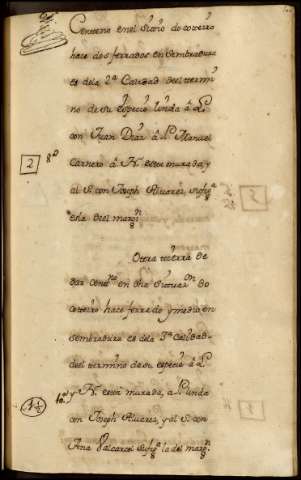 Centeno en el sitio do cotarro
hace dos ferrados en sembradura
es de la 2ª Calidad del termi
no de su especie linda á L.
con Juan Diaz á P. Manuel
Carnero á N. esta murada, y
al S. con Joseph Alvarez, su figª
es la del margⁿ
2
Otra tierra de
dar cento en dha situaᵒⁿ do
hace ferrado y medio en
sembradura es de la 3ª Calidad
del termino de su especie á L.
y N. esta murada, a P. linda
con Joseph Alvarez, y al S. con
Ana Valcarce su figª la del margⁿ
1½